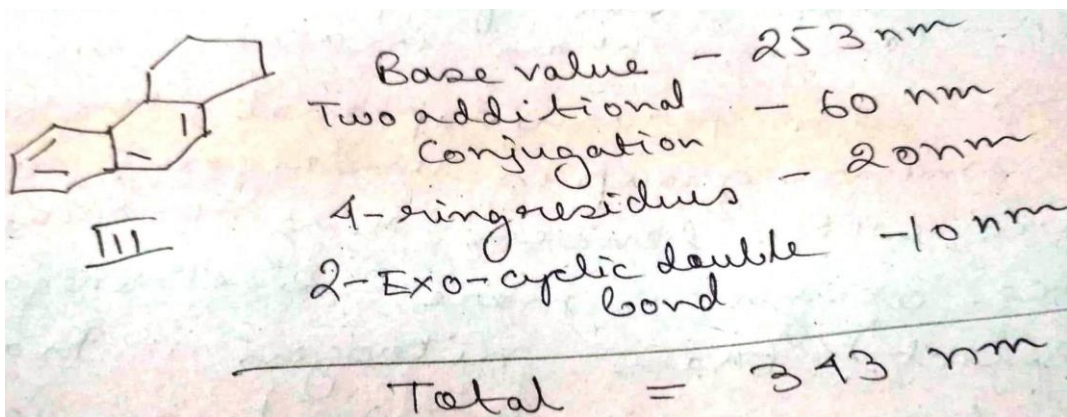 Base value - 253 nm
Two additional - 60 nm
Conjugation
4-ring residues - 20nm
2-Exo-cyclic double -10 nm
bond
III
Total = 343 nm